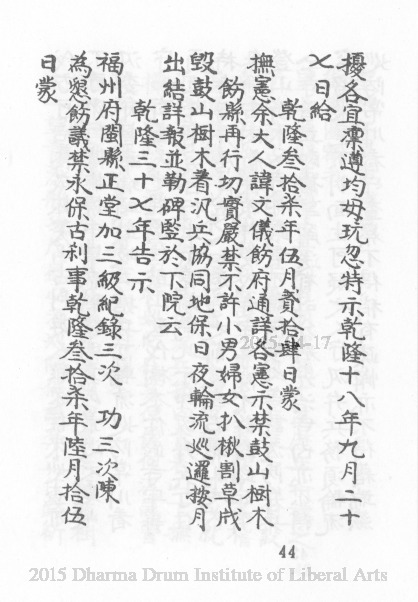 擾各宜稟遵均毋玩忽特示乾隆十八年九月二十
七日給
乾隆叁拾柒年伍月貳拾肆日蒙
撫憲余大人諱文儀飭府通詳各憲示禁鼓山樹木
飭縣再行切實嚴禁不許小男婦女扒楸割草戕
毀鼓山樹木着汛兵協同地保日夜輪流巡邏按月
出結詳報並勒碑豎於下院云
乾隆三十七年告示
福州府閩縣正堂加三級紀錄三次 功三次陳
為懇飭議禁永保古刹事乾隆叁拾柒年陸月拾伍
日蒙
44
2015-04-17
2015 Dharma Drum Institute of Liberal Arts